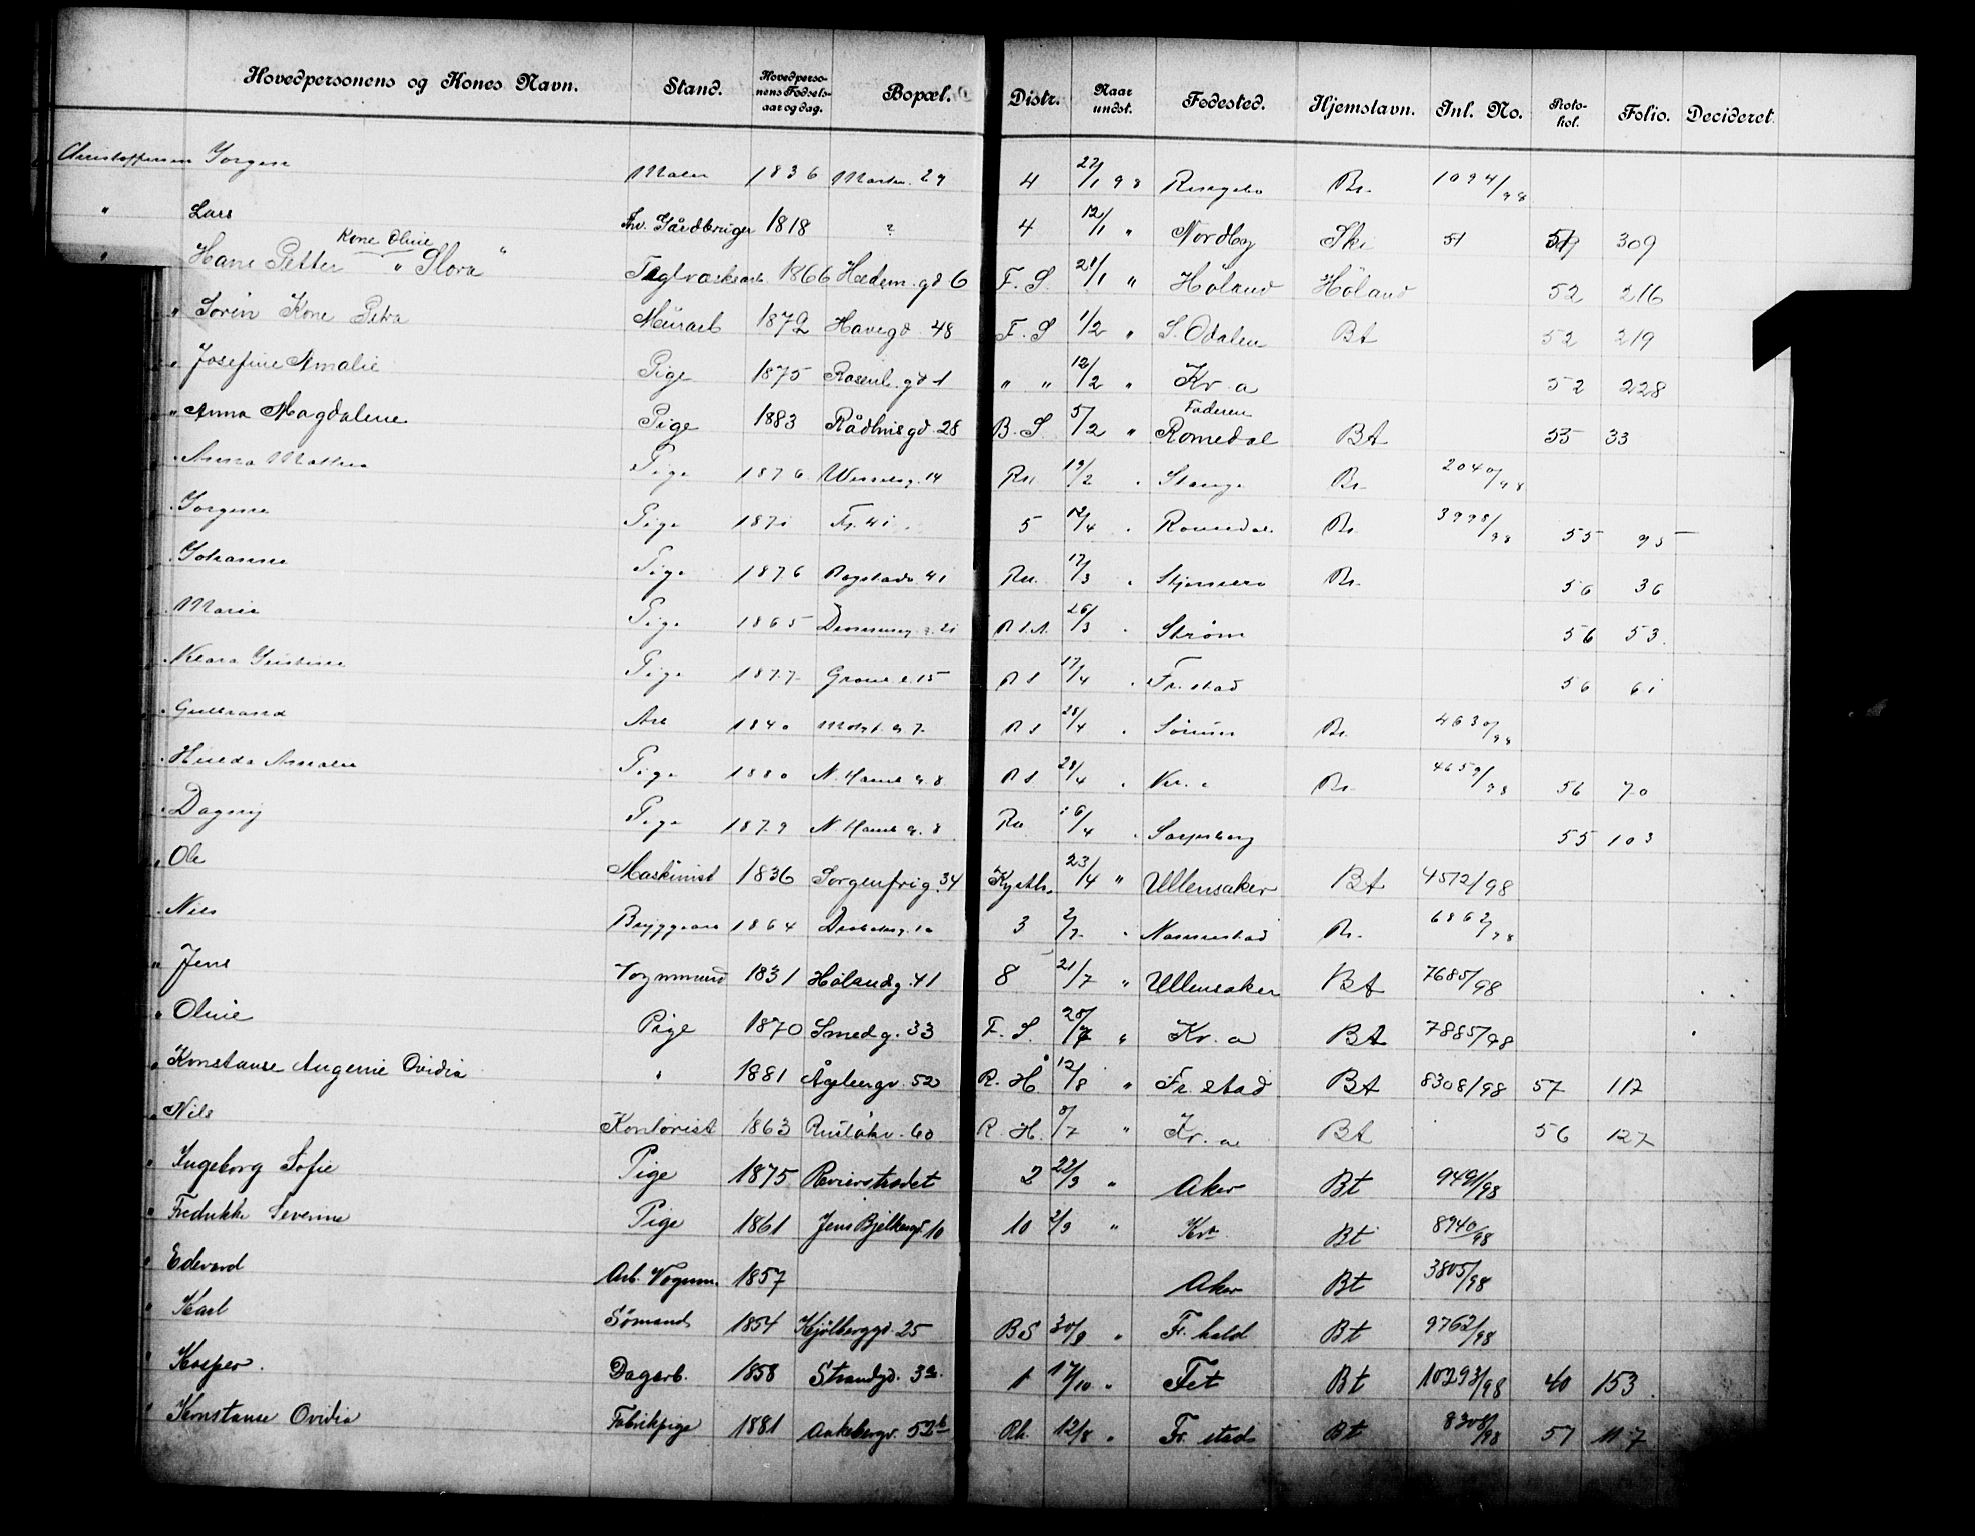 Hovedpersonens og Kones Navn. Stand. Hovedpersonens Fødselsaar og dag. Bopæl. Distr. Naar undst. Fødested. Hjemstavn. Inl. No. Protokol. Folio. Decideret.
Christoffersen Jørgen Maler 1836 29 4 22/1 98 Ringebo Bt. 1094/98
" Lars Fhv. Gårdbruger 1818 ? 4 12/1 " Nordby Ski 51 309
Kone Oline "
" Hans Petter " Flora Teglverksarb 1866 Hedem.gd 6 F. S. 21/1 " Høland Høland 52 216
" Sørin Kone Petra Murarb 1872 Havegd. 48 F. S 1/2 " S. Odalen Bt 52 219
" Josefine Amalie Pige 1875 Rosenb. gd 1 " " 12/2 " Kr. a 52 228
" Anna Magdalene Pige 1883 Rådhusgd. 28 B. S. 5/2 " Faderen Romedal Bt 55 33
" Anna Mathea Pige 1876 Wesselsg. 14 Ru 19/2 " Stange Bt. 2040/98
" Jørgine Pige 1871 5 12/4 " Romedal Bt. 3998/98 55 95
" Johanne Pige 1876 41 Ru. 17/3 " Bt. 56 36
" Marie Pige 1865 21 26/3 " Strøm 56 53.
" Klara Kristine Pige 1877 15 17/4 " Fr.stad 56 61
" Gulbrand Arb 1840 28/4 " Sørum Bt. 4630/98
" Hilda Amalie Pige 1880 8 28/4 " Kr. a Bt. 4659/98 56 70
" Dagny Pige 1879 8 Ru 16/4 " Sarpsborg 55 103
" Ole Maskinist 1836 Sorgenfrig. 34 23/4 " Ullensaker Bt 4512/98
" Nils Bryggearb 1864 3 2/7 " Nannestad Bt. 6862/98
" Jens Vognmand 1831 Hølandg. 41 8 21/7 " Ullensaker Bt 7685/98
" Oline Pige 1870 Smedg. 33 F. S. 20/7 " Kr. a Bt 7885/98
" Konstanse Augenie Ovidia " 1881 Ågebergv. 52 R. H. 12/8 " Fr. stad Bt 8308/98 57 117
" Nils Kontorist 1863 60 R. H. 8/7 " Kr. a Bt 56 127
" Ingeborg Sofie Pige 1875 Revierstredet 2 22/9 " Aker Bt 9491/98
" Fredrikke Severine Pige 1861 Jens Bjelkesgd 10 10 2/9 " Kra Bt 8940/98
" Edevard Arb. Vognm. 1857 Aker Bt 3805/98
" Karl Sømand 1854 Kjølberggd. 25 BS 30/9 " Fr. hald Bt 9762/98
" Kasper. Dagarb. 1858 Strandgd. 3a. 1 17/10 " Fet Bt 10293/98 40 153.
" Konstanse Ovidia Fabrikpige 1881 Aakebergv. 52b Rh. 12/8 " Fr. stad Bt 8308/98 57 117